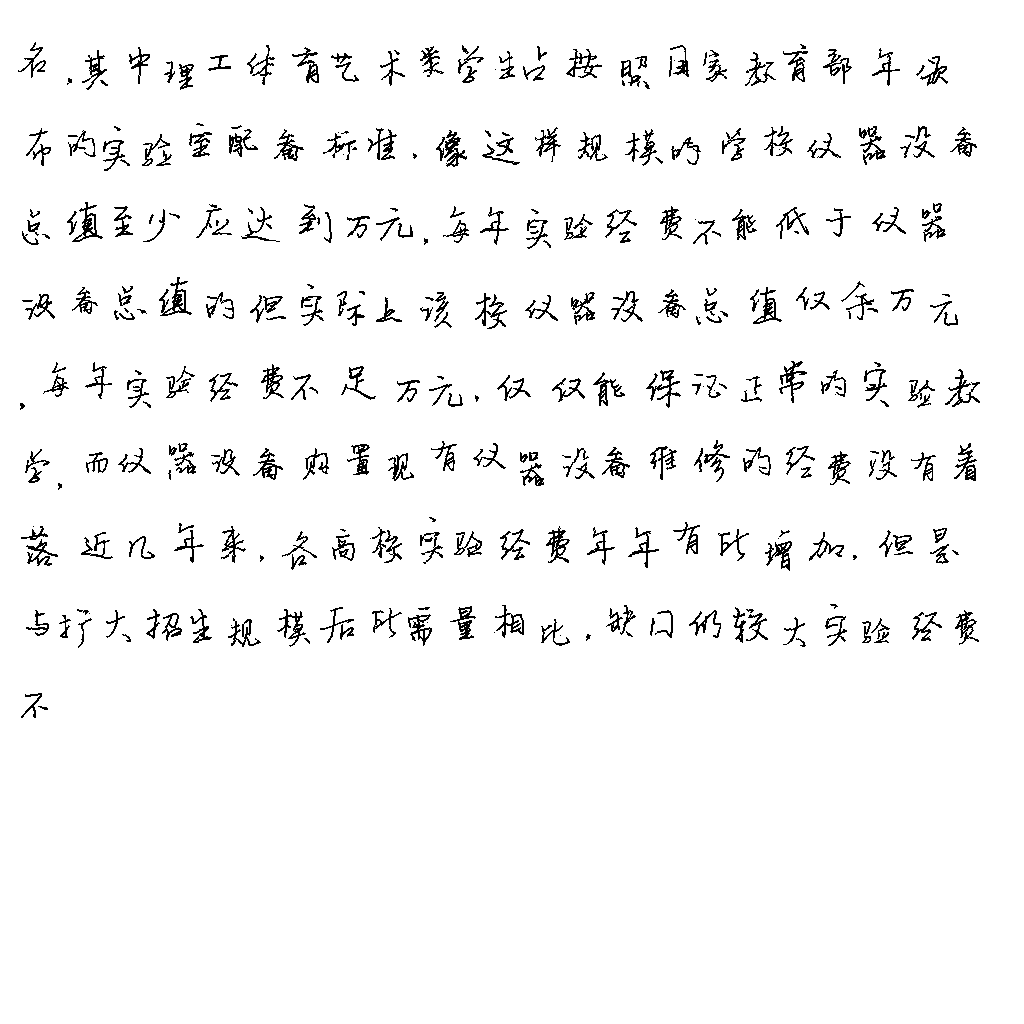 名,其中理工体育艺术类学生占按照国家教育部年颁
布的实验室配备标准,像这样规模的学校仪器设备
总值至少应达到万元,每年实验经费不能低于仪器
设备总值的但实际上该校仪器设备总值仅余万元
,每年实验经费不足万元,仅仅能保证正常的实验教
学,而仪器设备购置现有仪器设备维修的经费没有着
落近几年来,各高校实验经费年年有所增加,但是
与扩大招生规模后所需量相比,缺口仍较大实验经费
不